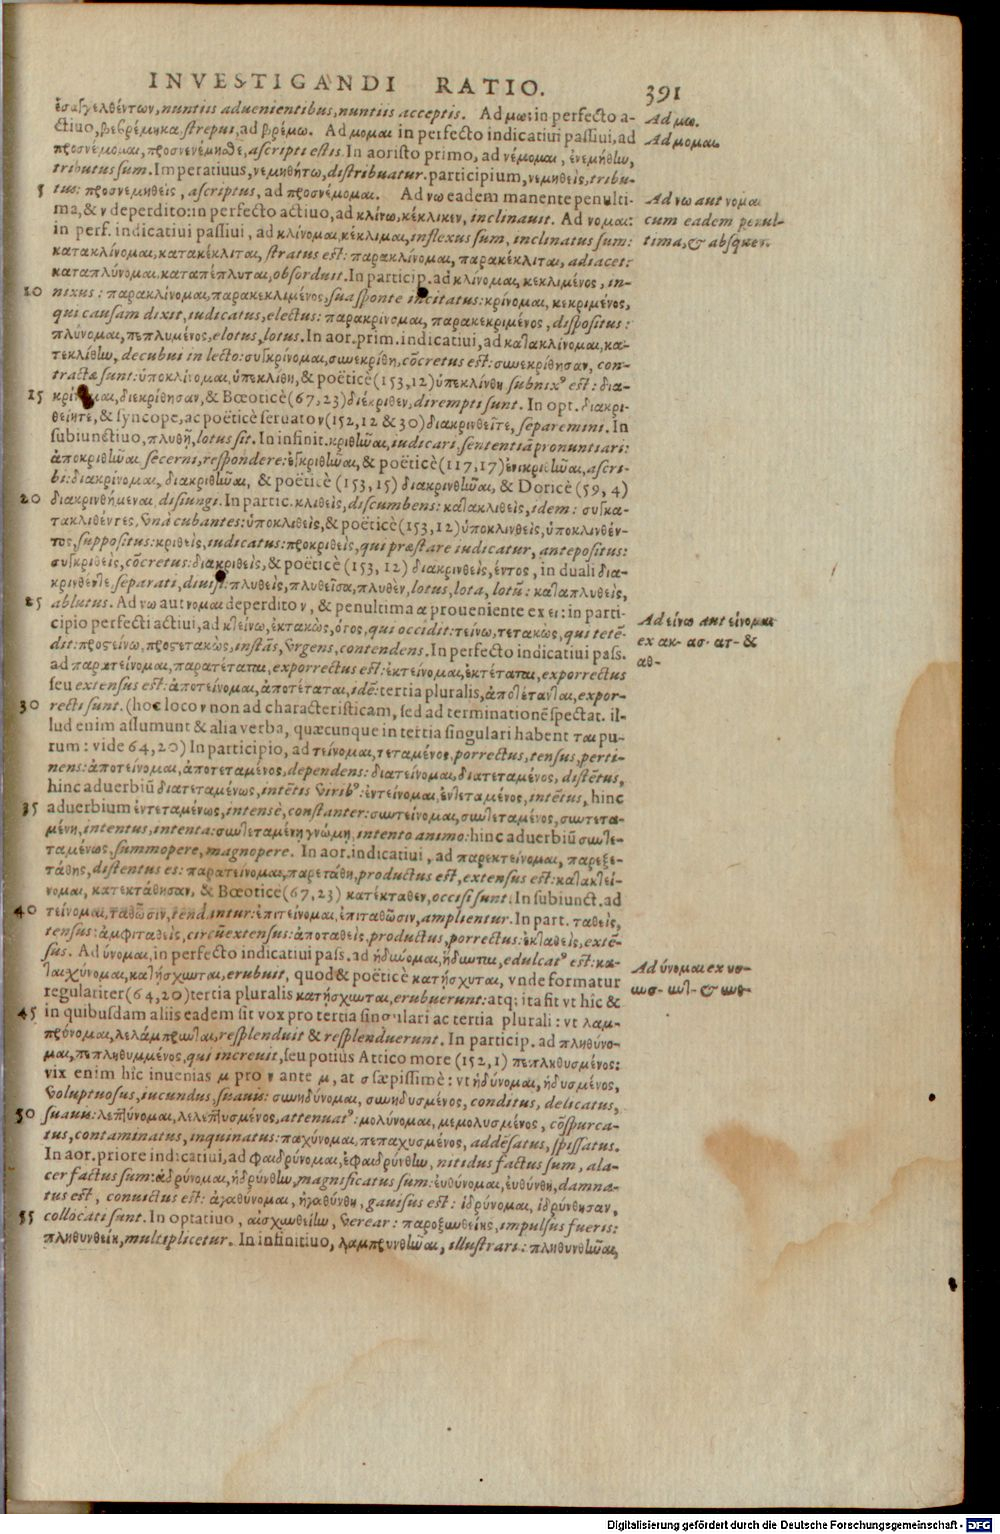 INVESTIGANDI RATIO. 391
ἐσαγγελθέντων, nuntiis aduenientibus, nuntiis acceptis. Ad μω: in perfecto a-
ctiuo, βεβρέμηκα, strepui, ad βρέμω. Ad μομαι in perfecto indicatiui passiui, ad
προσνέμομαι, προσνενέμησθε, ascripti estis. In aoristo primo, ad νέμομαι, ἐνεμήθλω,
tributus sum. Imperatiuus, νεμηθήτω, distribuatur. participium, νεμηθεὶς, tribu-
5 tus: προσνεμηθεὶς, ascriptus, ad προσνέμομαι. Ad νω eadem manente penulti-
ma, & ν deperdito: in perfecto actiuo, ad κλίνω, κέκλικεν, inclinauit. Ad νομαι:
in perf. indicatiui passiui, ad κλίνομαι, κέκλιμαι, inflexus sum, inclinatus sum:
κατακλίνομαι, κατακέκλιται, stratus est: παρακλίνομαι, παρακέκλιται, adiacet:
καταπλύνομαι, καταπέπλυται, obsorduit. In particip. ad κλίνομαι, κεκλιμένος, in-
10 nixus: παρακλίνομαι, παρακεκλιμένος, sua sponte incitatus: κρίνομαι, κεκριμένος,
qui causam dixit, iudicatus, electus: παρακρίνομαι, παρακεκριμένος, dispositus:
πλύνομαι, πεπλυμένος, elotus, lotus. In aor. prim. indicatiui, ad κατακλίνομαι, κα-
τεκλίθλω, decubui in lecto: συγκρίνομαι, συνεκρίθη, cōcretus est: συνεκρίθησαν, con-
tractæ sunt: ὑποκλίνομαι, ὑπεκλίθη, & poëticè (153, 12) ὑπεκλίνθη subnixꝰ est: δια-
15 κρίνομαι, διεκρίθησαν, & Bœoticè (67, 23) διέκριθεν, dirempti sunt. In opt. διακρι-
θείητε, & syncope, ac poëticè seruato ν (152, 12 & 30) διακρινθεῖτε, separemini. In
subiunctiuo, πλυθῇ, lotus sit. In infinit. κριθῆναι, iudicari, sententiā pronuntiari:
ἀποκριθῆναι secerni, respondere: ἐγκριθῆναι, & poëticè (117, 17) ἐνικριθῆναι, ascri-
bi: διακρίνομαι, διακριθῆναι, & poëticè (153, 15) διακρινθῆναι, & Doricè (59, 4)
20 διακρινθήμεναι disiungi. In partic. κλιθεὶς, discumbens: κατακλιθεὶς, idem: συγκα-
τακλιθέντες, vnà cubantes: ὑποκλιθεὶς, & poëticè (153, 12) ὑποκλινθεὶς, ὑποκλινθέν-
τος, suppositus: κριθεὶς, iudicatus: προκριθεὶς, qui præstare iudicatur, antepositus:
συγκριθεὶς, cōcretus: διακριθεὶς, & poëticè (153, 12) διακρινθεὶς, έντος, in duali δια-
κρινθέντε, separati, diuisi: πλυθεὶς, πλυθεῖσα, πλυθὲν, lotus, lota, lotū: καταπλυθεὶς,
25 ablutus. Ad νω aut νομαι deperdito ν, & penultima α proueniente ex ει: in parti-
cipio perfecti actiui, ad κτείνω, ἐκτακὼς, ότος, qui occidit: τείνω, τετακὼς, qui tetē-
dit: προστείνω, προστετακὼς, instās, vrgens, contendens. In perfecto indicatiui pass.
ad παρατείνομαι, παρατέταται, exporrectus est: ἐκτείνομαι, ἐκτέταται, exporrectus
seu extensus est: ἀποτείνομαι, ἀποτέταται, idē: tertia pluralis, ἀποτέτανται, expor-
30 recti sunt. (hoc loco ν non ad characteristicam, sed ad terminationē spectat. il-
lud enim assumunt & alia verba, quæcunque in tertia singulari habent ται pu-
rum: vide 64, 20) In participio, ad τείνομαι, τεταμένος, porrectus, tensus, perti-
nens: ἀποτείνομαι, ἀποτεταμένος, dependens: διατείνομαι, διατεταμένος, distētus,
hinc aduerbiū διατεταμένως, intētis viribꝰ: ἐντείνομαι, ἐντεταμένος, intētus, hinc
35 aduerbium ἐντεταμένως, intensè, constanter: συντείνομαι, συντεταμένος, συντετα-
μένη, intentus, intenta: συντεταμένῃ γνώμῃ, intento animo: hinc aduerbiū συντε-
ταμένως, summopere, magnopere. In aor. indicatiui, ad παρεκτείνομαι, παρεξε-
τάθης, distentus es: παρατείνομαι, παρετάθη, productus est, extensus est: κατακτεί-
νομαι, κατεκτάθησαν, & Bœoticè (67, 23) κατέκταθεν, occisi sunt. In subiunct. ad
40 τείνομαι, ταθῶσιν, tenduntur: ἐπιτείνομαι, ἐπιταθῶσιν, amplientur. In part. ταθεὶς,
tensus: ἀμφιταθεὶς, circūextensus: ἀποταθεὶς, productus, porrectus: ἐκταθεὶς, extē-
sus. Ad ύνομαι, in perfecto indicatiui pass. ad ἡδύνομαι, ἥδυνται, edulcatꝰ est: κα-
ταισχύνομαι, κατῄσχυνται, erubuit, quod & poëticè κατῄσχυται, vnde formatur
regulariter (64, 20) tertia pluralis κατῄσχυνται, erubuerunt: atq; ita fit vt hîc &
45 in quibusdam aliis eadem sit vox pro tertia singulari ac tertia plurali: vt λαμ-
πρύνομαι, λελάμπρυνται, resplenduit & resplenduerunt. In particip. ad πληθύνο-
μαι, πεπληθυμμένος, qui increuit, seu potius Attico more (152, 1) πεπληθυσμένος:
vix enim hîc inuenias μ pro ν ante μ, at σ sæpissimè: vt ἡδύνομαι, ἡδυσμένος,
voluptuosus, iucundus, suauis: συνηδύνομαι, συνηδυσμένος, conditus, delicatus,
50 suauis: λεπτύνομαι, λελεπτυσμένος, attenuatꝰ: μολύνομαι, μεμολυσμένος, cōspurca-
tus, contaminatus, inquinatus: παχύνομαι, πεπαχυσμένος, addēsatus, spissatus.
In aor. priore indicatiui, ad φαιδρύνομαι, ἐφαιδρύνθλω, nitidus factus sum, ala-
cer factus sum: ἁδρύνομαι, ἡδρύνθλω, magnificatus sum: εὐθύνομαι, εὐθύνθη, damna-
tus est, conuictus est: ἀγαθύνομαι, ἠγαθύνθη, gauisus est: ἱδρύνομαι, ἱδρύνθησαν,
55 collocati sunt. In optatiuo, αἰσχυνθείλω, verear: παροξυνθείης, impulsus fueris:
πληθυνθείη, multiplicetur. In infinitiuo, λαμπρυνθῆναι, illustrari: πληθυνθῆναι,
Ad μω.
Ad μομαι.
Ad νω aut νομαι
cum eadem penul-
tima, & absque ν.
Ad είνω aut είνομαι
ex ακ- ασ- ατ- &
αθ-
Ad ύνομαι ex υσ-
υνσ- υντ- & υνθ-
Digitalisierung gefördert durch die Deutsche Forschungsgemeinschaft - DFG